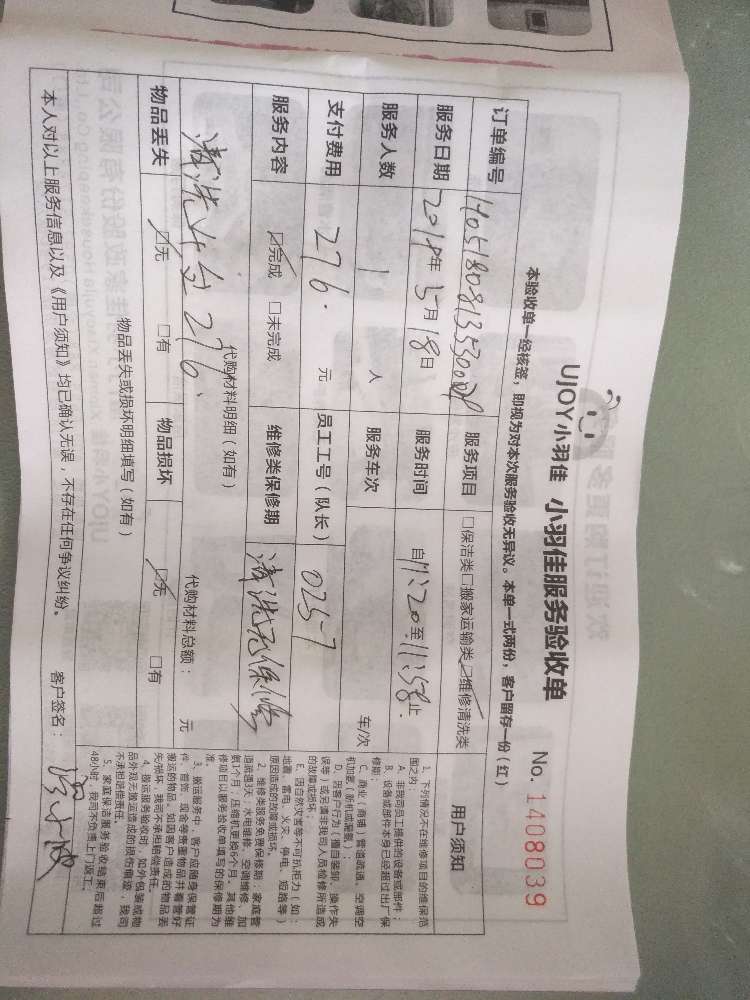 UJOY小羽佳 小羽佳服务验收单
No. 1408039
本验收单一经核签,即视为对本次服务验收无异议。本单一式两份,客户留存一份(红)
订单编号
服务项目 □保洁类□搬家运输类☑维修清洗类
服务日期 2018年5月18日 服务时间 自11:20至11:58止
服务人数 1 人 服务车次 车/次
支付费用 276. 元 员工工号(队长) 0257
服务内容 ☑完成 □未完成 维修类保修期 清洗无保修
代购材料明细(如有) 代购材料总额: 元
276.
物品丢失 ☑无 □有 物品损坏 ☑无 □有
物品丢失或损坏明细填写(如有)
本人对以上服务信息以及《用户须知》均已确认无误,不存在任何争议纠纷。 客户签名:
用户须知
1、下列情况不在维修项目的维保范
围之内:
A、非我司员工提供的设备或部件;
B、设备或部件本身已经超过出厂保
修期;
C、商业(商铺)管道疏通、空调空
机加氨(新机或漏氨);
D、因客户行为(擅自装卸、操作失
误等)或另请非我司人员检修所造成
的故障或损坏;
E、因自然灾害等不可抗拒力(如:
地震、雷电、火灾、停电、短路等)
原因造成的故障或损坏。
2、维修类服务免费保修期:家庭管
道疏通3天;水电维修、空调维修、加
氨1个月;压缩机更换6个月。其他维
修项目以服务验收单填写的保修期为
准。
3、搬运服务中,客户应随身保管证
件、首饰、现金等贵重物品并看管好
搬运的物品,如因客户造成的物品丢
失/损坏,我司不承担赔偿责任。
4、搬运服务验收时,如外包装或物
品外观无搬运造成的损伤痕迹,我司
不承担赔偿责任。
5、家庭保洁服务验收结束后超过
48小时,我司不负责上门返工。